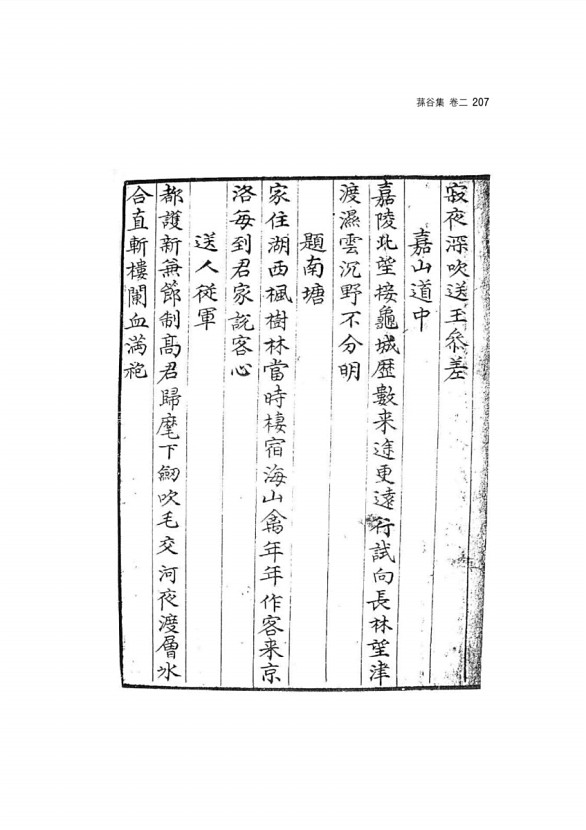 蓀谷集 卷二 207
寂夜深吹送玉參差
嘉山道中
嘉陵北望接龜城歷數来途更遠行試向長林望津
渡濕雲沉野不分明
題南塘
家住湖西楓樹林當時棲宿海山禽年年作客来京
洛每到君家說客心
送人從軍
都護新兼節制高君歸麾下劒吹毛交河夜渡層冰
合直斬樓闌血滿袍